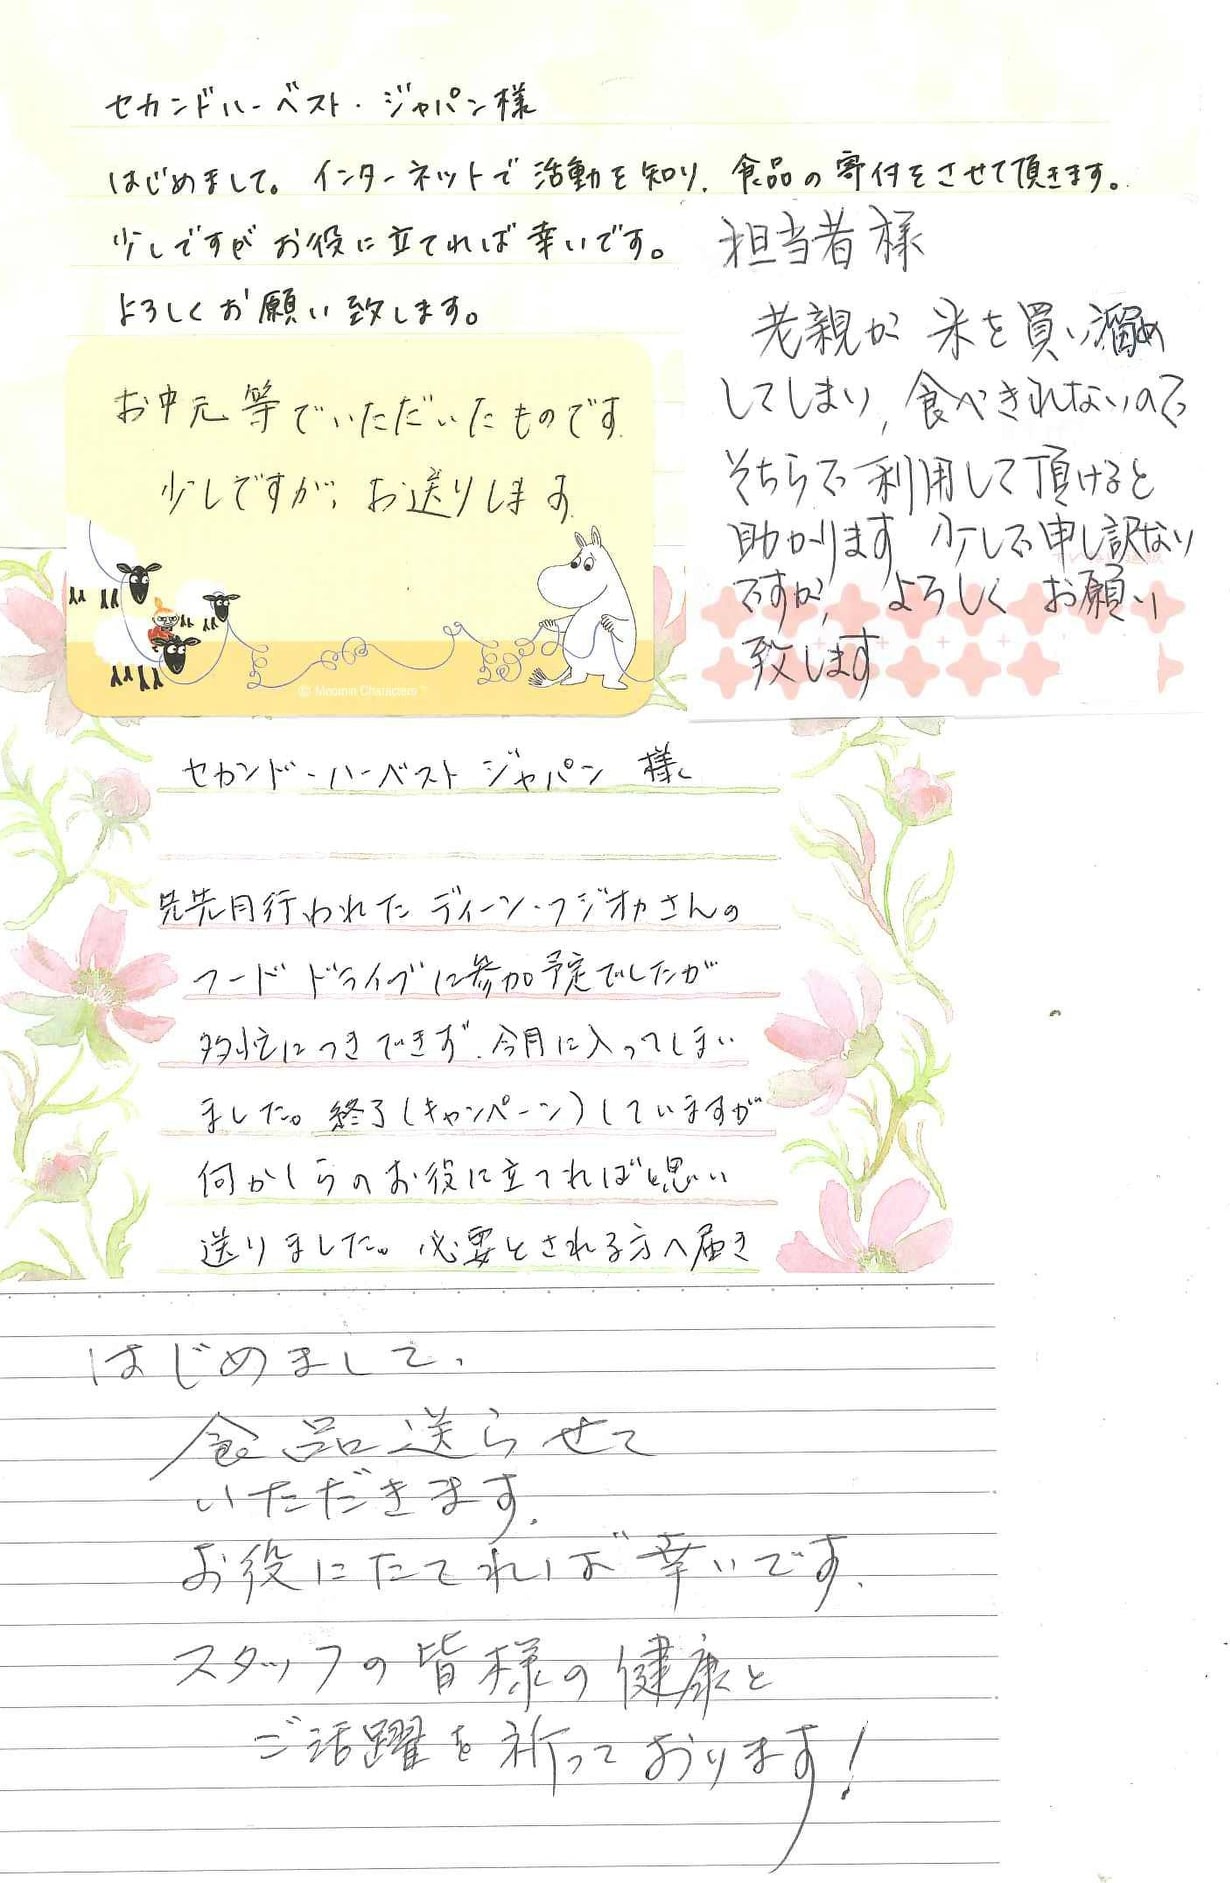 セカンドハーベスト・ジャパン様
はじめまして。インターネットで活動を知り、食品の寄付をさせて頂きます。
少しですが お役に立てれば幸いです。
よろしくお願い致します。
担当者様
老親が 米を買い溜め
してしまい、食べきれないので
そちらで利用して頂けると
助かります 少しで申し訳ない
ですが、よろしく お願い
致します
お中元等でいただいたものです.
少しですが、お送りします.
© Moomin Characters™
セカンド・ハーベスト ジャパン 様
先先月行われた ディーン・フジオカさんの
フードドライブに参加予定でしたが
多忙につきできず、今月に入ってしまい
ました。終了(キャンペーン)していますが
何かしらのお役に立てればと思い
送りました。必要とされる方へ届き
はじめまして、
食品送らせて
いただきます.
お役にたてれば幸いです.
スタッフの皆様の健康と
ご活躍を祈っております!